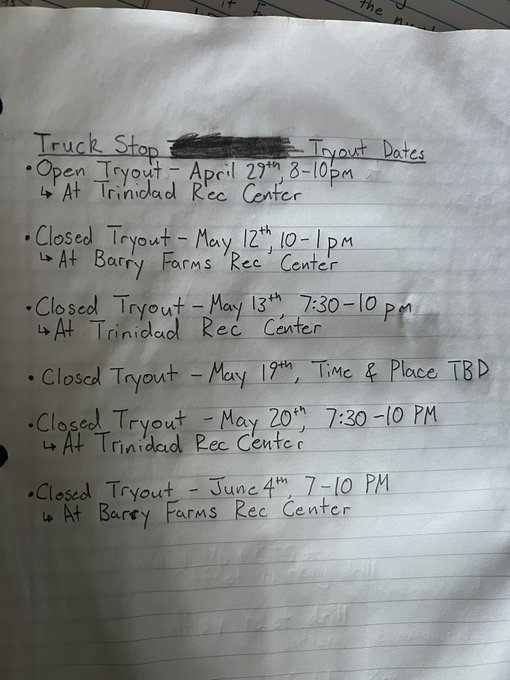 Truck Stop Tryout Dates
• Open Tryout - April 29th, 8-10pm
↳ At Trinidad Rec Center
• Closed Tryout - May 12th, 10-1pm
↳ At Barry Farms Rec Center
• Closed Tryout - May 13th, 7:30-10 pm
↳ At Trinidad Rec Center
• Closed Tryout - May 19th, Time & Place TBD
• Closed Tryout - May 20th, 7:30-10 PM
↳ At Trinidad Rec Center
• Closed Tryout - June 4th, 7-10 PM
↳ At Barry Farms Rec Center